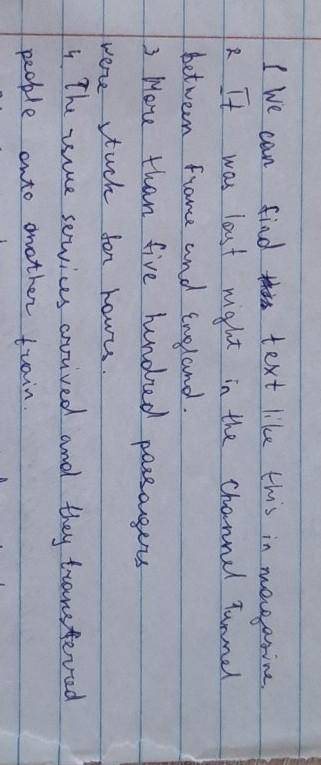 1 We can find text like this in magasine.
2 It was last night in the Channel Tunnel
between France and England.
3 More than five hundred passagers
were stuck for hours.
4 The resue services arrived and they transferred
people onto another train.